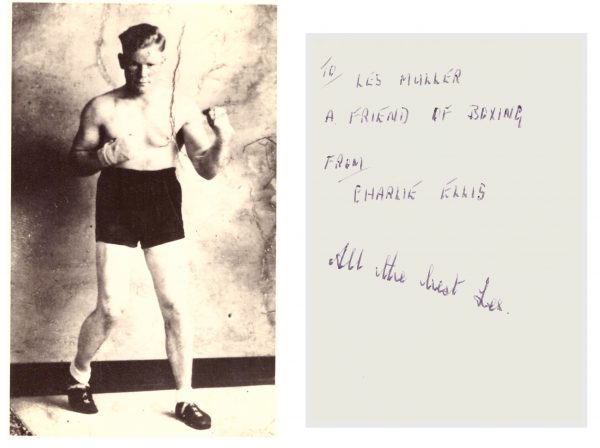 TO/ LES MULLER
A FRIEND OF BOXING
FROM
CHARLIE ELLIS
All the best Les.